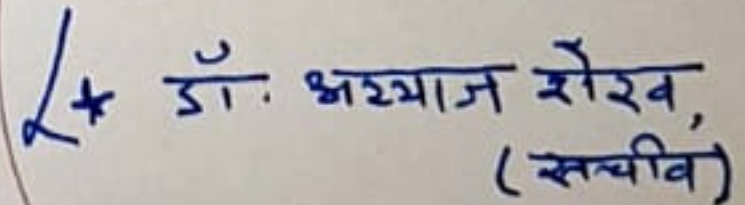 * डॉ. अय्याज शेख,
(सचीव)